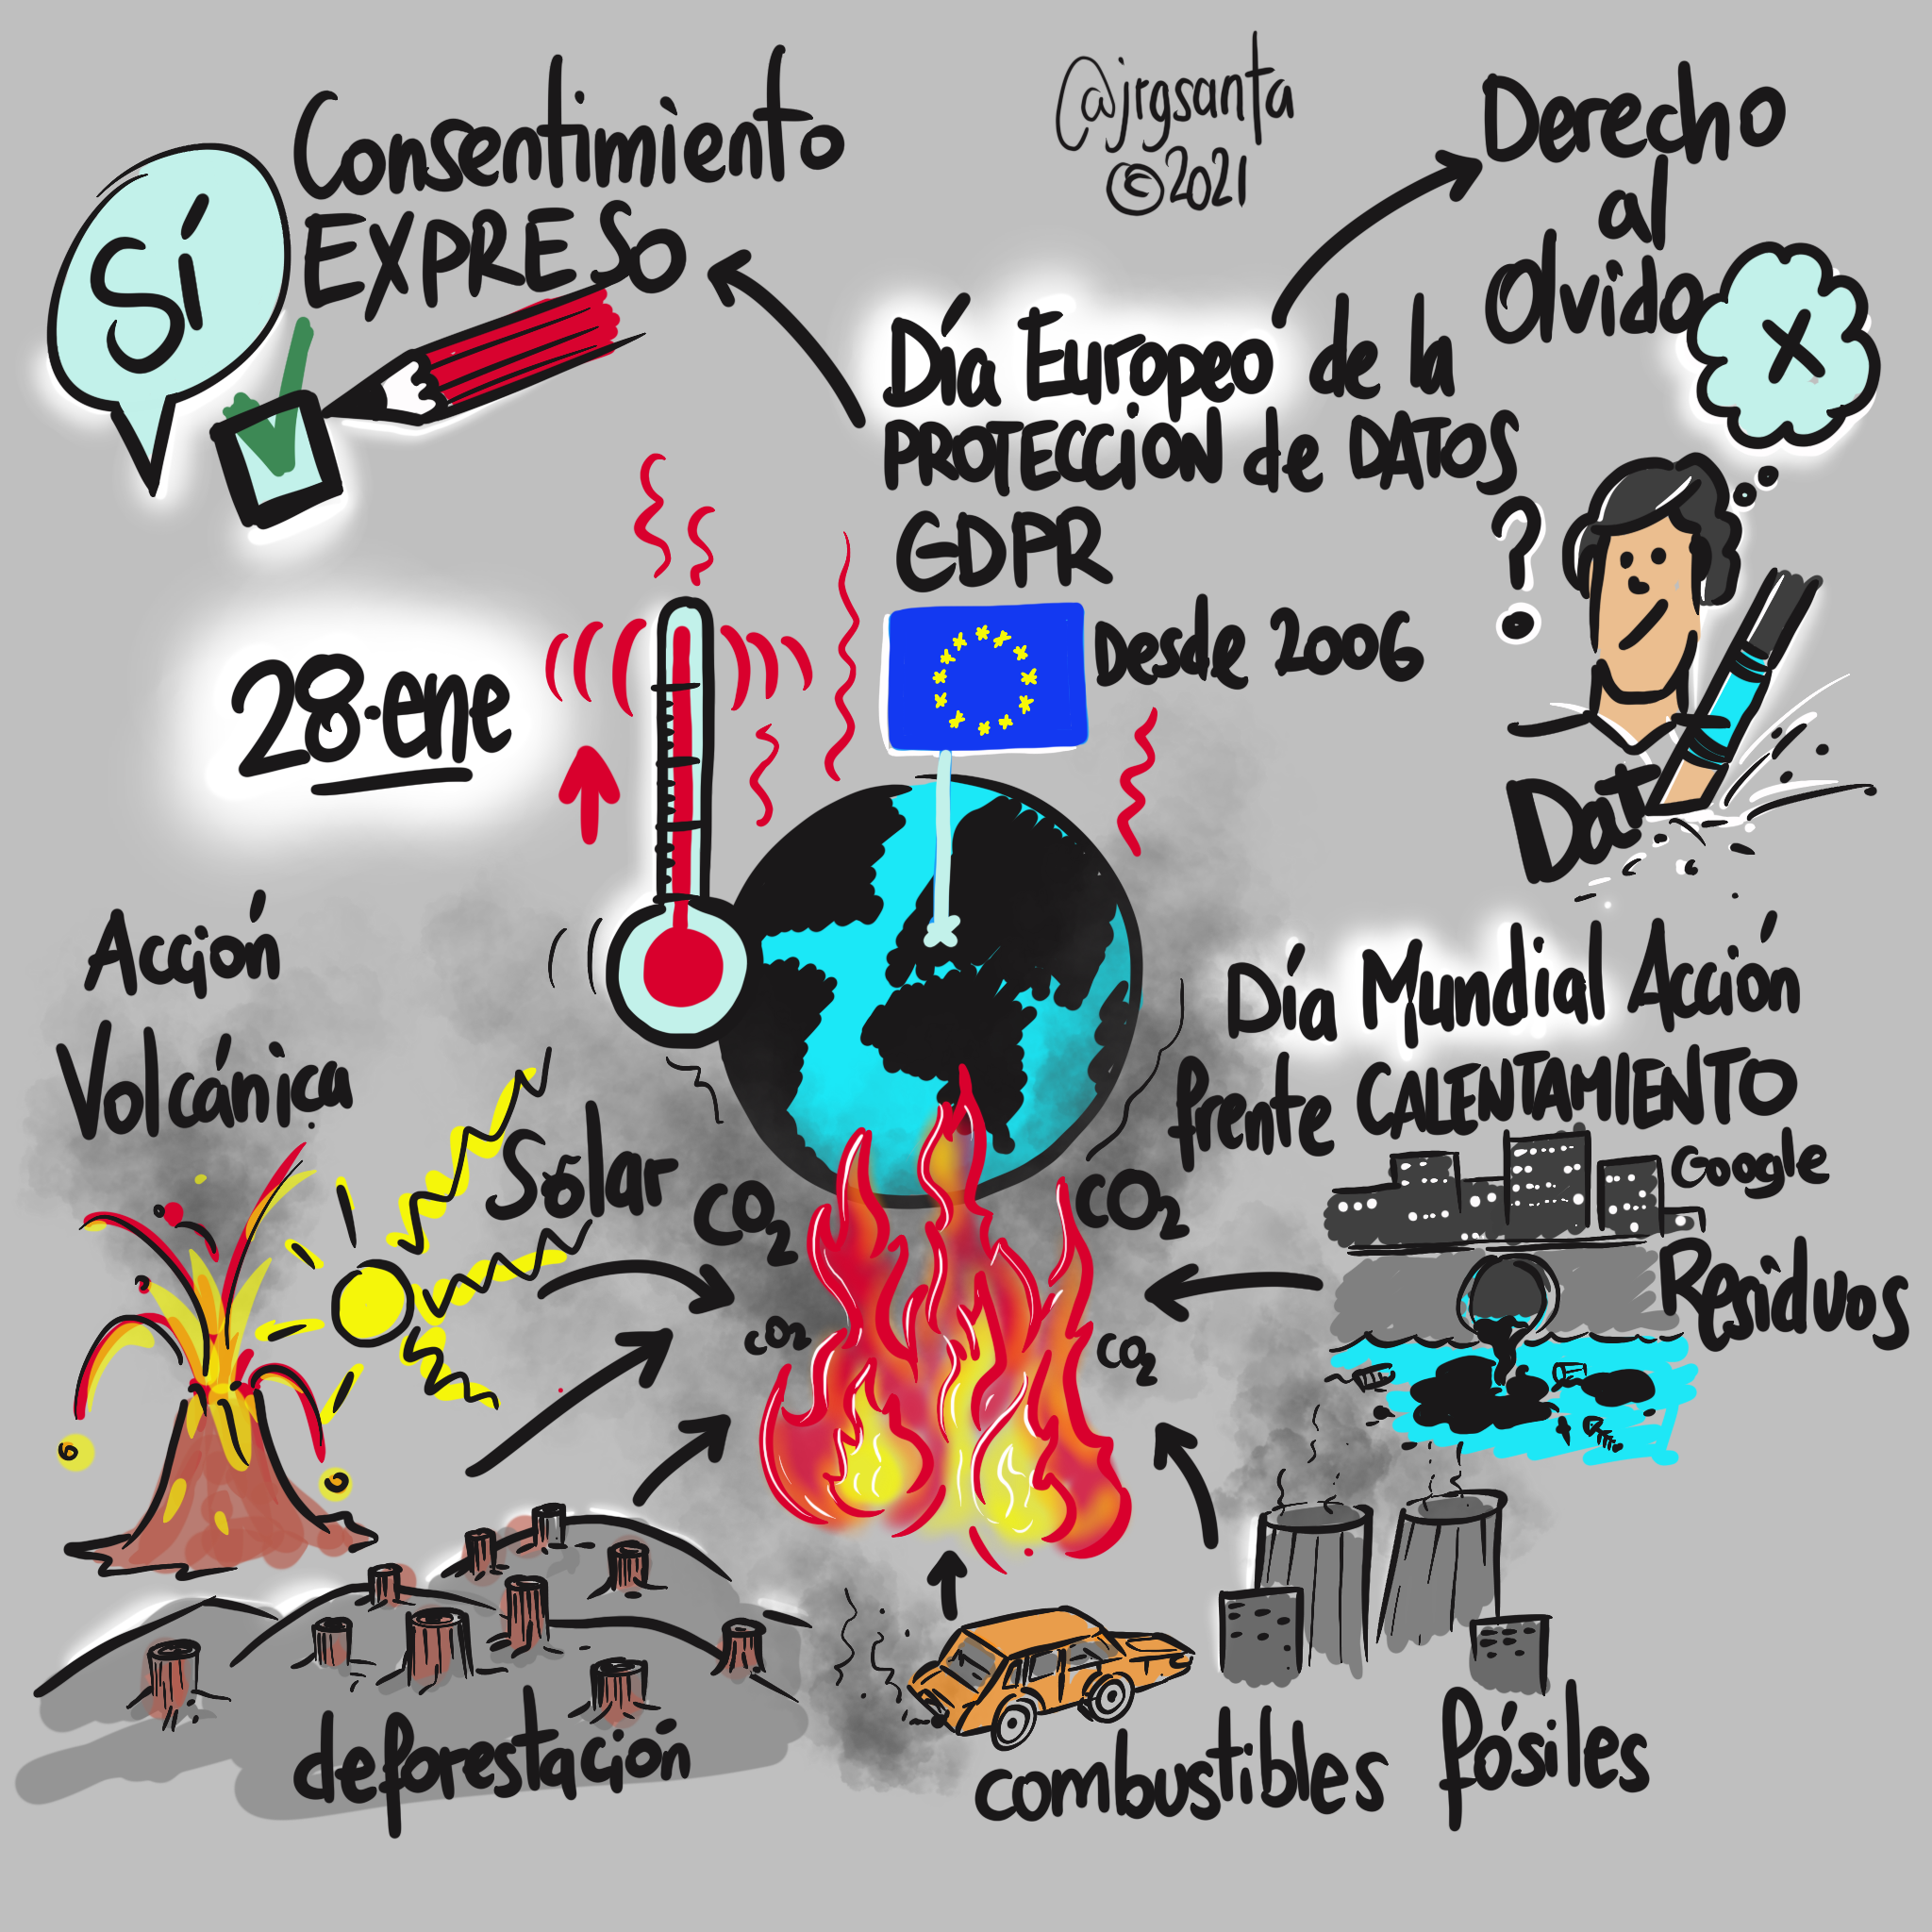 Consentimiento
EXPRESO
SÍ
@jrgsanta
©2021
Derecho
al
Olvido
X
Día Europeo de la
PROTECCIÓN de DATOS
GDPR
Desde 2006
?
28·ene
Dat
Acción
Volcánica
Solar
Día Mundial Acción
frente CALENTAMIENTO
Google
Residuos
CO2
CO2
CO2
CO2
deforestación
combustibles fósiles